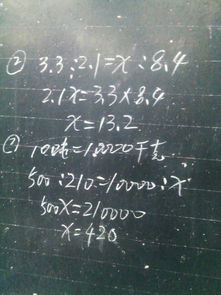 ② 3.3:2.1=x:8.4
2.1x=3.3×8.4
x=13.2
10吨=10000千克
500:210=10000:x
500x=210000
x=420